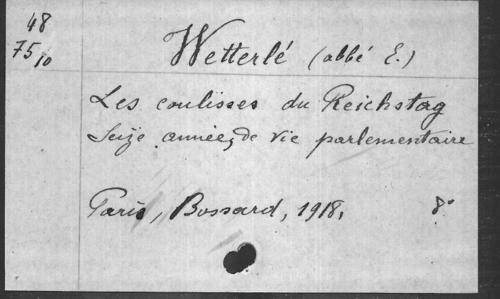 48
75/10
Wetterlé (abbé E.)
Les coulisses du Reichstag
Seize années de vie parlementaire
Paris, Bossard, 1918, 8°